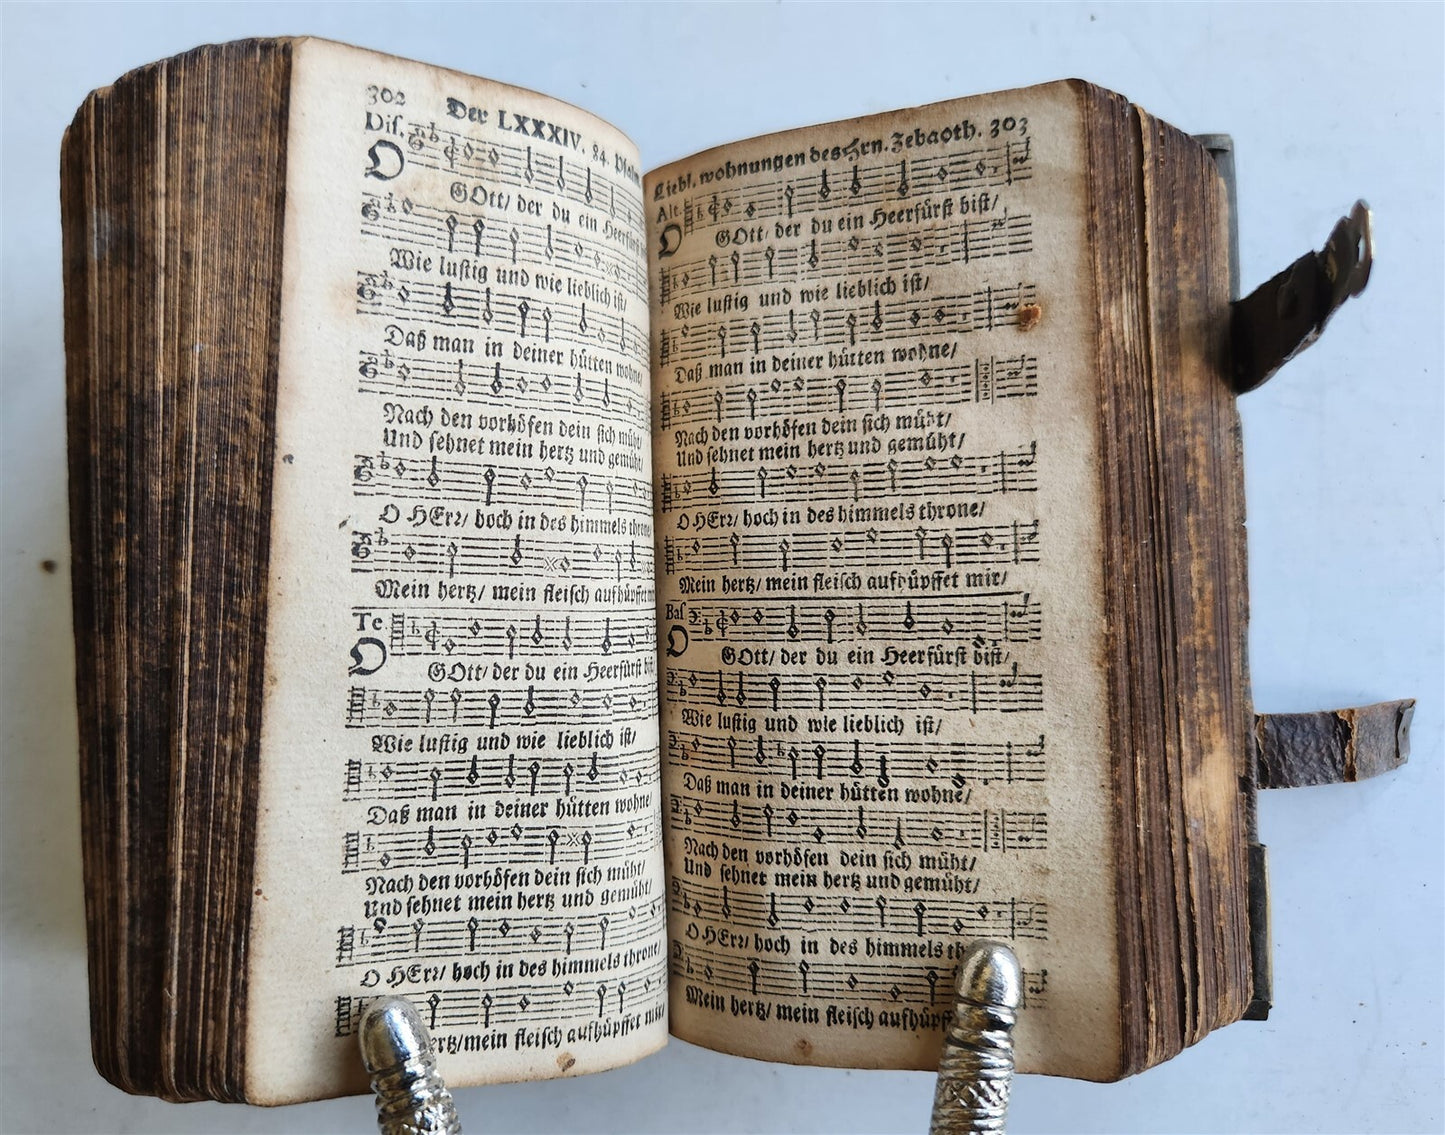 302 Der LXXXIV. 84. Psalm
Dis.
O GOtt/ der du ein Heerfürst
Wie lustig und wie lieblich ist/
Daß man in deiner hütten wohne/
Nach den vorhöfen dein sich müht/
Und sehnet mein hertz und gemüht/
O HErr/ hoch in des himmels throne/
Mein hertz/ mein fleisch aufhüpffet mir
Te
O GOtt/ der du ein Heerfürst bist/
Wie lustig und wie lieblich ist/
Daß man in deiner hütten wohne/
Nach den vorhöfen dein sich müht/
Und sehnet mein hertz und gemüht/
O HErr/ hoch in des himmels throne/
ertz/mein fleisch aufhüpffet mir/
Liebl. wohnungen des Hrn. Zebaoth. 303
Alt.
O GOtt/ der du ein Heerfürst bist/
Wie lustig und wie lieblich ist/
Daß man in deiner hütten wohne/
Nach den vorhöfen dein sich müht/
Und sehnet mein hertz und gemüht/
O HErr/ hoch in des himmels throne/
Mein hertz/ mein fleisch aufhüpffet mir/
Bas
O GOtt/ der du ein Heerfürst bist/
Wie lustig und wie lieblich ist/
Daß man in deiner hütten wohne/
Nach den vorhöfen dein sich müht/
Und sehnet mein hertz und gemüht/
O HErr/ hoch in des himmels th
Mein hertz/ mein fleisch aufhüpff